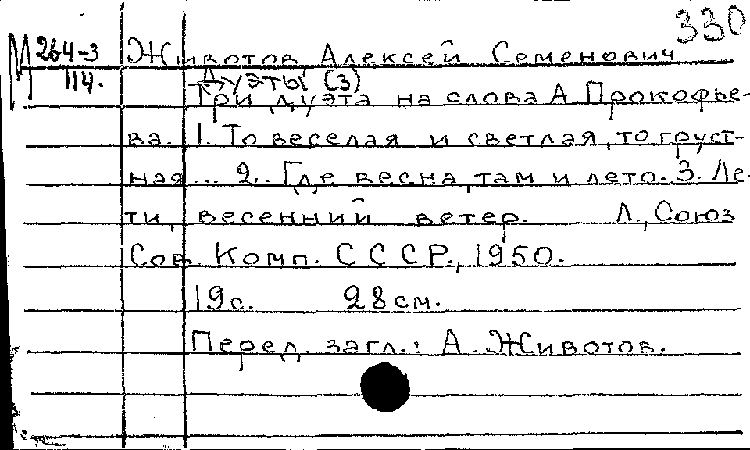 330
М 264-3 Животов Алексей Семенович
114. Дуэты (3)
Три дуэта на слова А Прокофье-
ва. 1. То веселая и светлая, то груст-
ная... 2. Где весна, там и лето. 3. Ле-
ти, весенний ветер. Л., Союз
Сов. Комп. СССР, 1950.
19с. 28см.
Перед загл.: А. Животов.